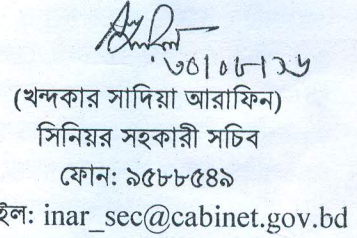 ৩০|০৮|১৬
(খন্দকার সাদিয়া আরাফিন)
সিনিয়র সহকারী সচিব
ফোন: ৯৫৮৮৫৪৯
ইল: inar_sec@cabinet.gov.bd